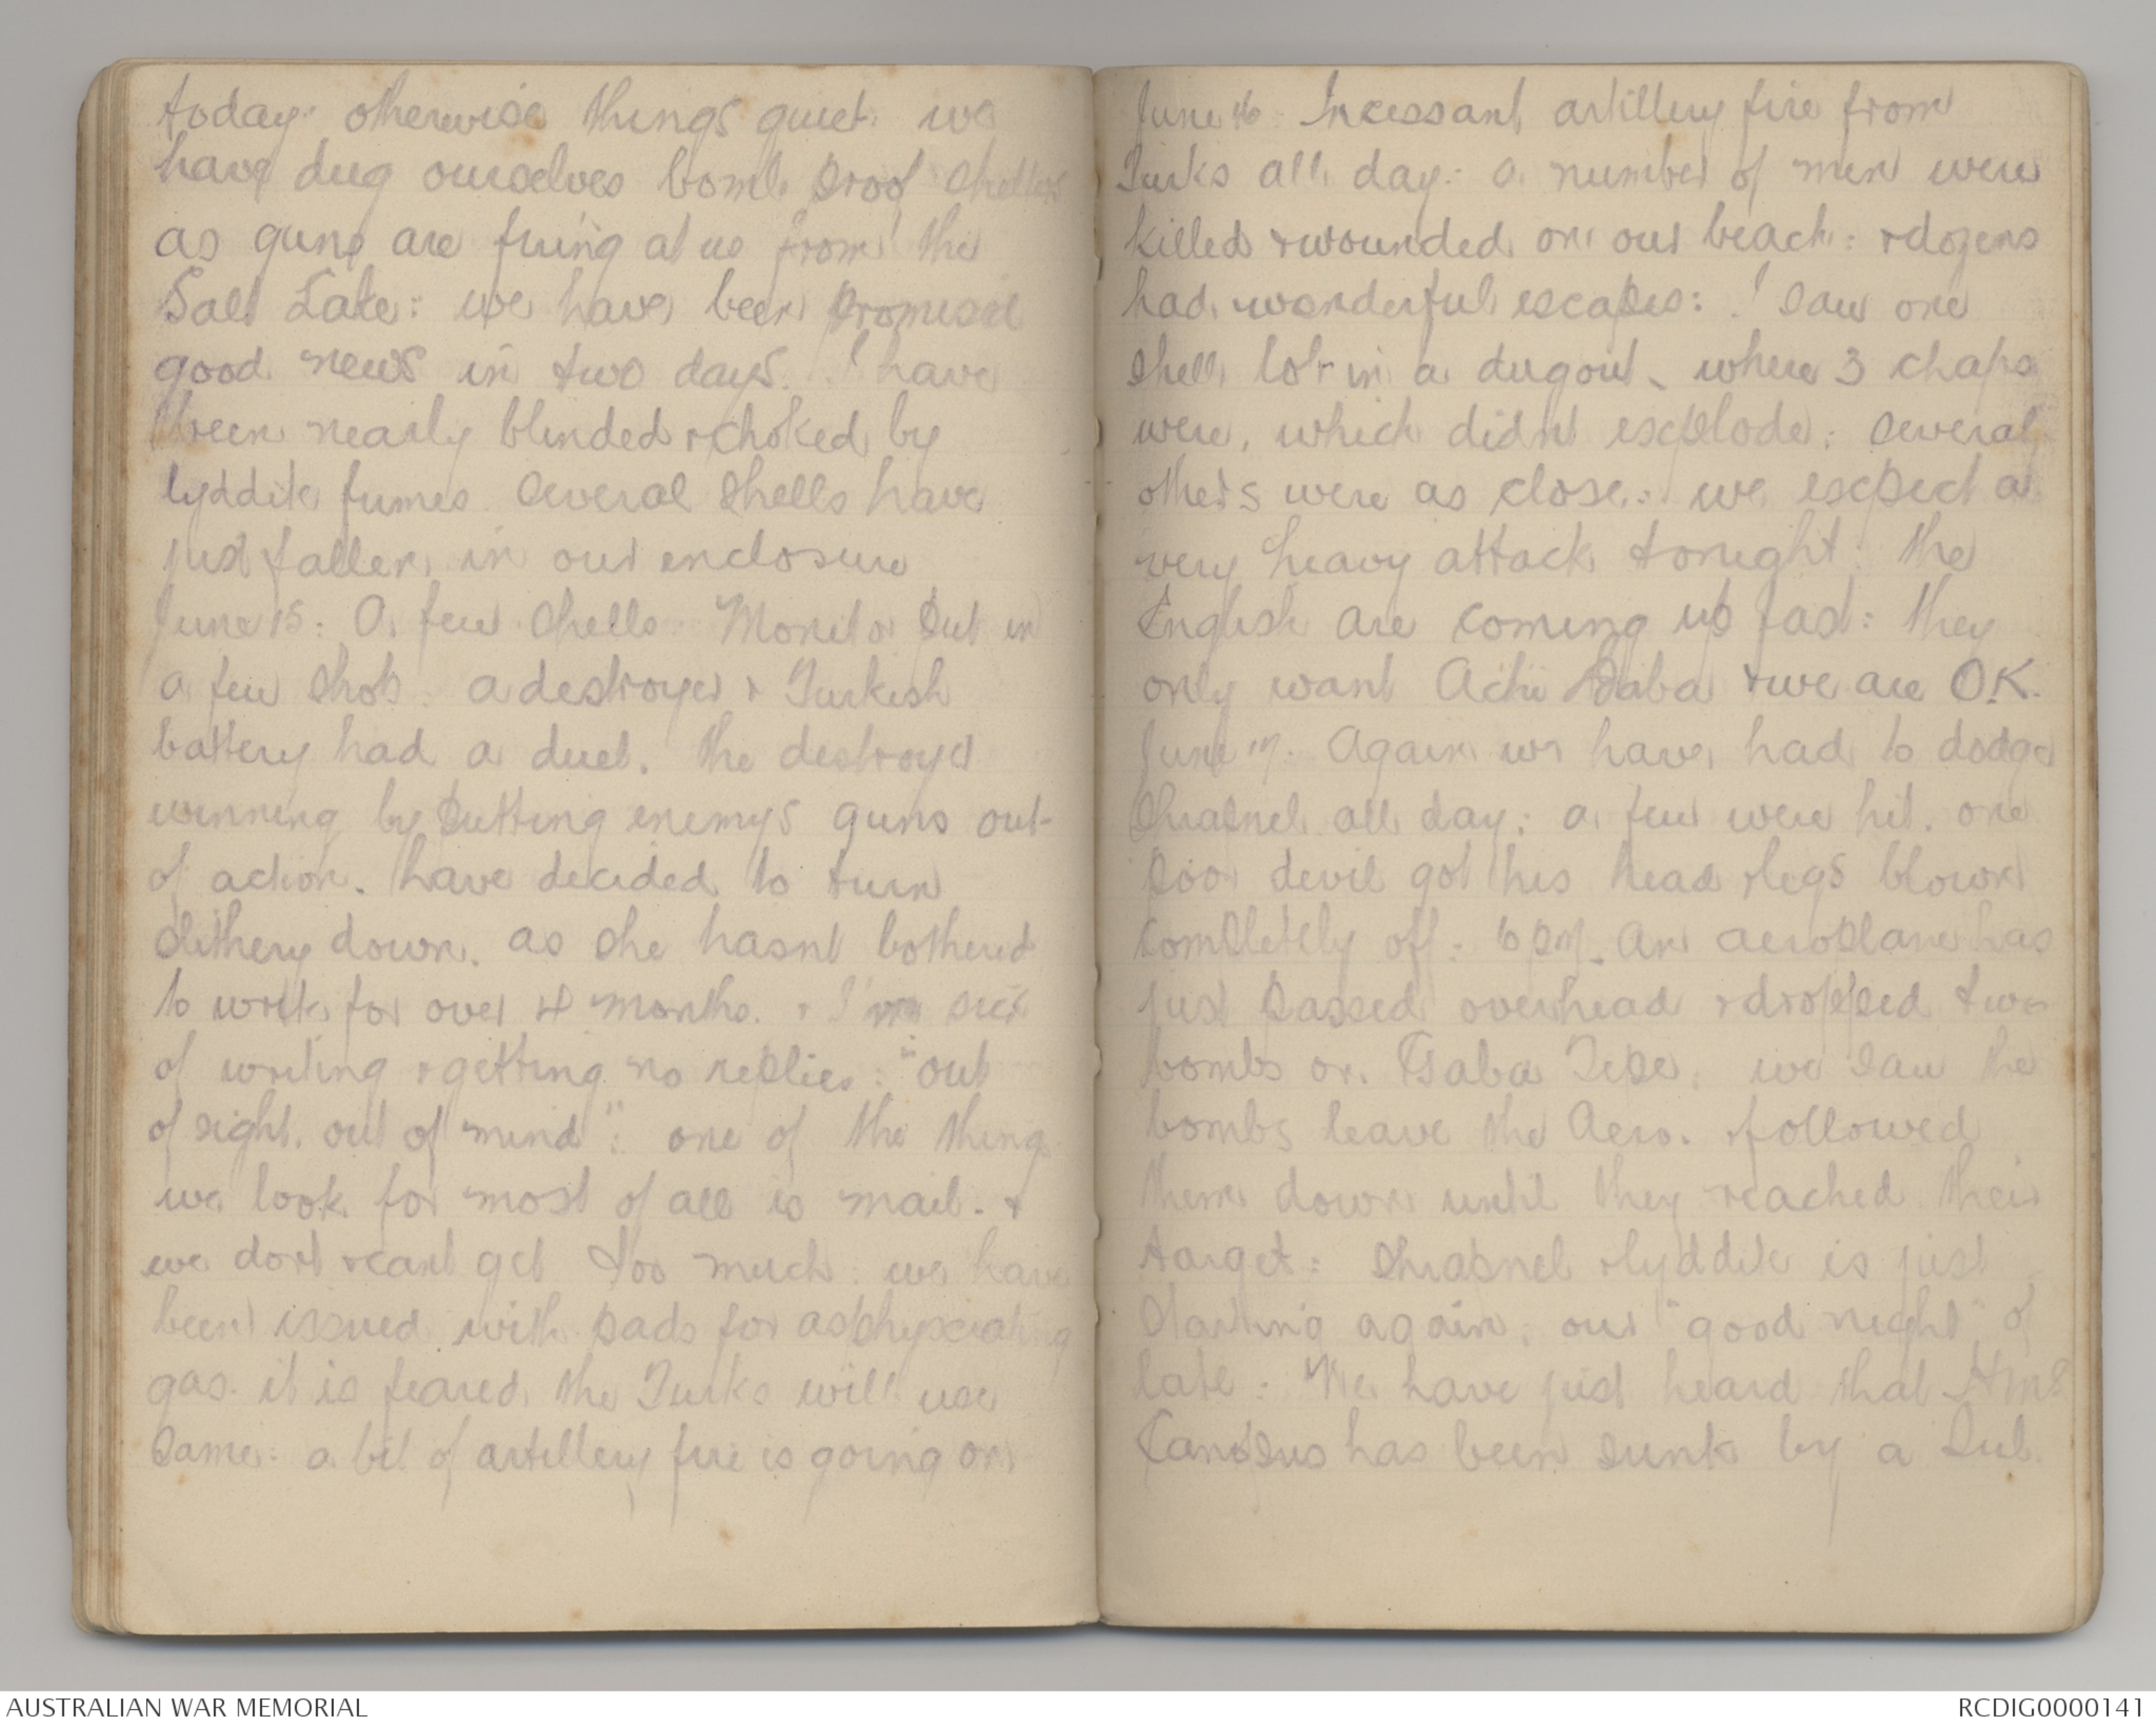 today: otherwise things quiet. we
have dug ourselves bomb proof shelters
as guns are firing at us from the
Salt Lake: we have been promised
good news in two days. I have
been nearly blinded & choked by
lyddite fumes. Several shells have
just fallen in our enclosure
June 15: A few shells. Monitor put in
a few shots. a destroyer & Turkish
battery had a duel. the destroyer
winning by putting enemys guns out
of action. have decided to turn
down. as she hasnt bothered
to write for over 4 months. & I'm sick
of writing & getting no replies: "out
of sight. out of mind": one of the things
we look for most of all is mail. &
we dont & cant get too much: we have
been issued with pads for asphyxiating
gas. it is feared the Turks will use
same: a bit of artillery fire is going on
June 16: Incessant artillery fire from
Turks all day: a number of men were
killed & wounded on our beach: & dozens
had wonderful escapes: I saw one
shell lob in a dugout, where 3 chaps
were, which didnt explode: several
others were as close: we expect a
very heavy attack tonight: the
English are coming up fast: they
only want Achi Baba & we are O.K.
June 17. Again we have had to dodge
shrapnel all day: a few were hit. one
poor devil got his head & legs blown
completely off: 6 pm. An aeroplane has
just passed overhead & dropped two
bombs on Gaba Tepe: we saw the
bombs leave the Aero. & followed
them down until they reached their
target: Shrapnel & lyddite is just
starting again, our "good night" of
late: We have just heard that HMS
Canopus has been sunk by a Sub.
AUSTRALIAN WAR MEMORIAL
RCDIG0000141